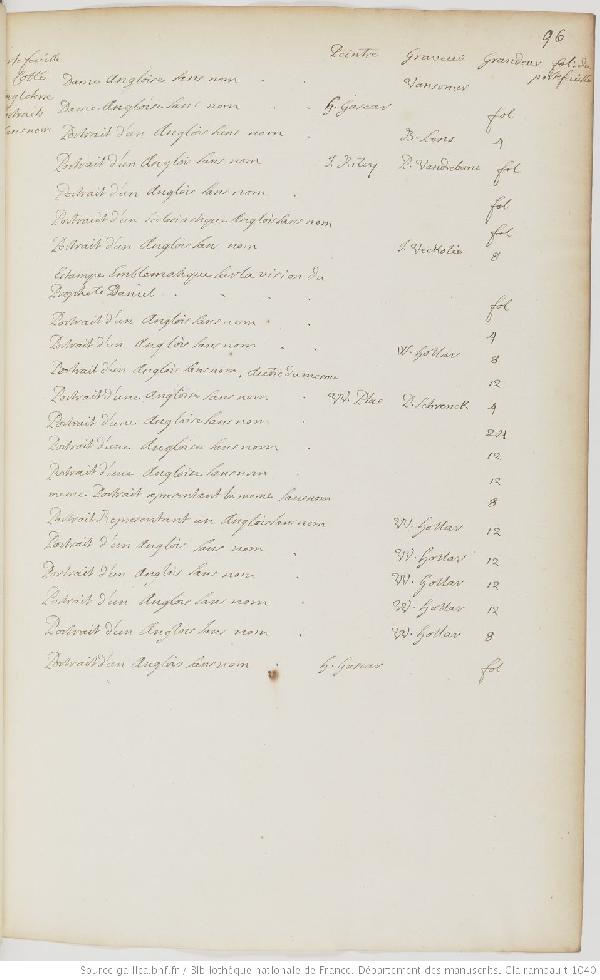 96
Peintre Graveur Grandeur fol. du portefeuille
feuille
Dame Angloise sans nom Vansomer
Dame Angloise sans nom H. Gascar fol
Portrait d'un Anglois sans nom B. Lens 4
Portrait d'un Anglois sans nom J. Riley P. Vandrebanc fol
Portrait d'un Anglois sans nom fol
Portrait d'un Ecclesiastique Anglois sans nom fol
Portrait d'un Anglois sans nom J. Verkolie 8
Estampe Emblematique sur la vision du
Prophete Daniel fol
Portrait d'un Anglois sans nom 4
Portrait d'un Anglois sans nom W. Hollar 8
Portrait d'un Anglois sans nom, Autre du meme 12
Portrait d'une Angloise sans nom W. P. Schenck 4
Portrait d'une Angloise sans nom 24
Portrait d'une Angloise sans nom 12
Portrait d'une Angloise sans nom 12
meme Portrait representant la meme sans nom 8
Portrait Representant un Anglois sans nom W. Hollar 12
Portrait d'un Anglois sans nom W. Hollar 12
Portrait d'un Anglois sans nom W. Hollar 12
Portrait d'un Anglois sans nom W. Hollar 12
Portrait d'un Anglois sans nom W. Hollar 8
Portrait d'un Anglois sans nom H. Gascar fol
Source gallica.bnf.fr / Bibliothèque nationale de France. Département des manuscrits. Clairambault 1040